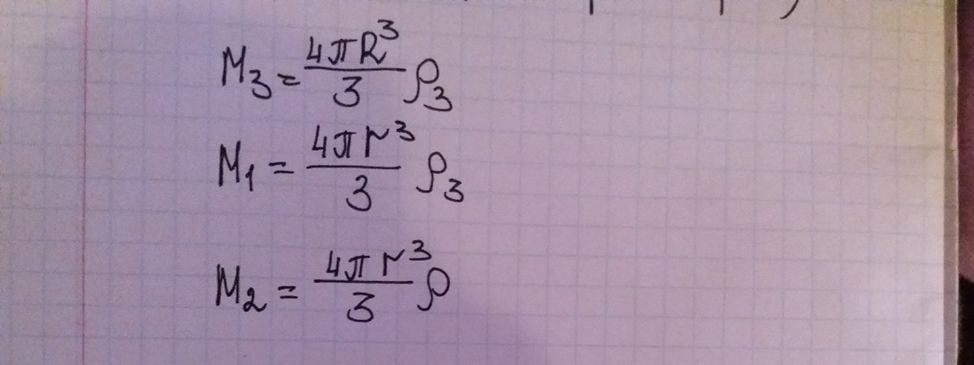 M₃ = 4πR³/3 ρ₃
M₁ = 4πr³/3 ρ₃
M₂ = 4πr³/3 ρ